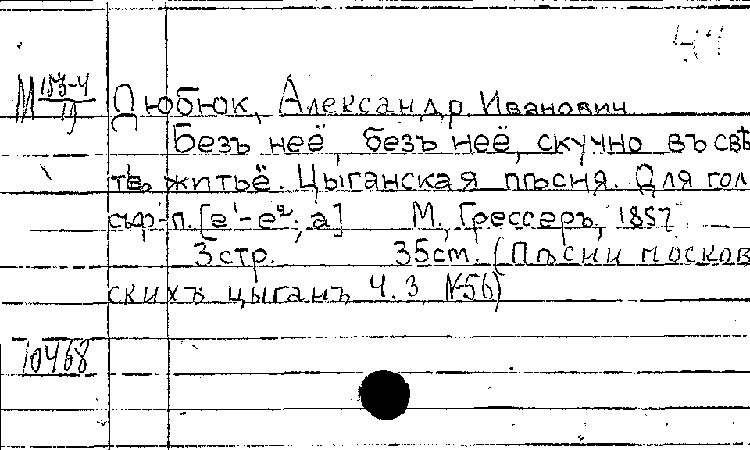 44
М 183-4/19 Дюбюк, Александр Иванович
Безъ неё, безъ неё, скучно въ свѣ
тѣ житьё. Цыганская пѣсня. Для гол.
съ ф-п. [e¹-e²; a] М., Грессеръ, 1857
3 стр. 35 см. (Пѣсни москов
скихъ цыганъ Ч. 3 №56)
10468